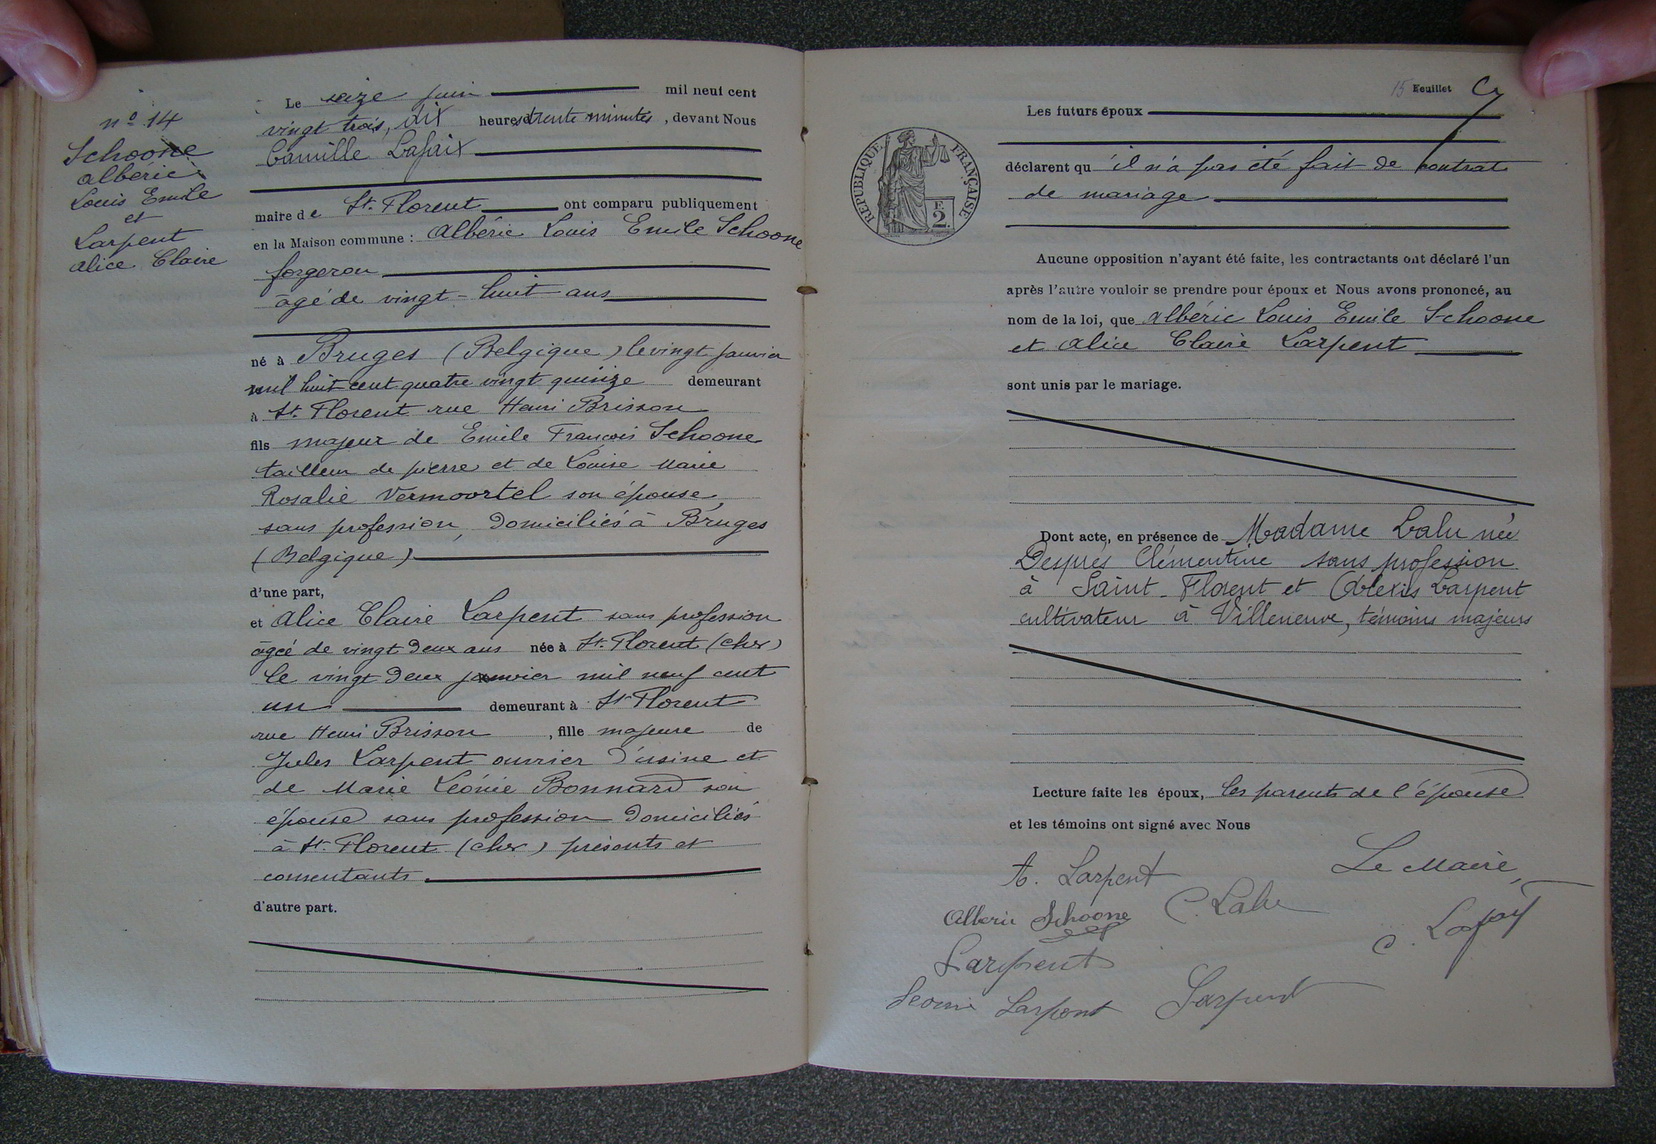 nº 14
Schoone
Albéric
Louis Emile
et
Larpent
Alice Claire
Le seize juin mil neuf cent
vingt trois, dix heures trente minutes, devant Nous
Camille Lafaix
maire de St. Florent ont comparu publiquement
en la Maison commune : Albéric Louis Emile Schoone
forgeron
âgé de vingt-huit ans
né à Bruges (Belgique) le vingt janvier
mil huit cent quatre vingt quinze demeurant
à St. Florent rue Henri Brisson
fils majeur de Emile François Schoone
tailleur de pierre et de Louise Marie
Rosalie Vermoortel son épouse,
sans profession, domiciliés à Bruges
(Belgique)
d'une part,
et Alice Claire Larpent sans profession
âgée de vingt deux ans née à St. Florent (Cher)
le vingt deux janvier mil neuf cent
un demeurant à St Florent
rue Henri Brisson, fille majeure de
Jules Larpent ouvrier d'usine et
de Marie Léonie Bonnard son
épouse sans profession domiciliés
à St. Florent (Cher) présents et
consentants
d'autre part.
15 Feuillet
RÉPUBLIQUE FRANÇAISE
F.
2
Les futurs époux
déclarent qu'il n'a pas été fait de contrat
de mariage
Aucune opposition n'ayant été faite, les contractants ont déclaré l'un
après l'autre vouloir se prendre pour époux et Nous avons prononcé, au
nom de la loi, que Albéric Louis Emile Schoone
et Alice Claire Larpent
sont unis par le mariage.
Dont acte, en présence de Madame Lalu née
Després Clémentine sans profession
à Saint-Florent et Alexis Larpent
cultivateur à Villeneuve, témoins majeurs
Lecture faite les époux, les parents de l'épouse
et les témoins ont signé avec Nous
A. Larpent
Le Maire,
Alberic Schoone
C. Lalu
C. Lafaix
Larpent
Leonie Larpent
Larpent